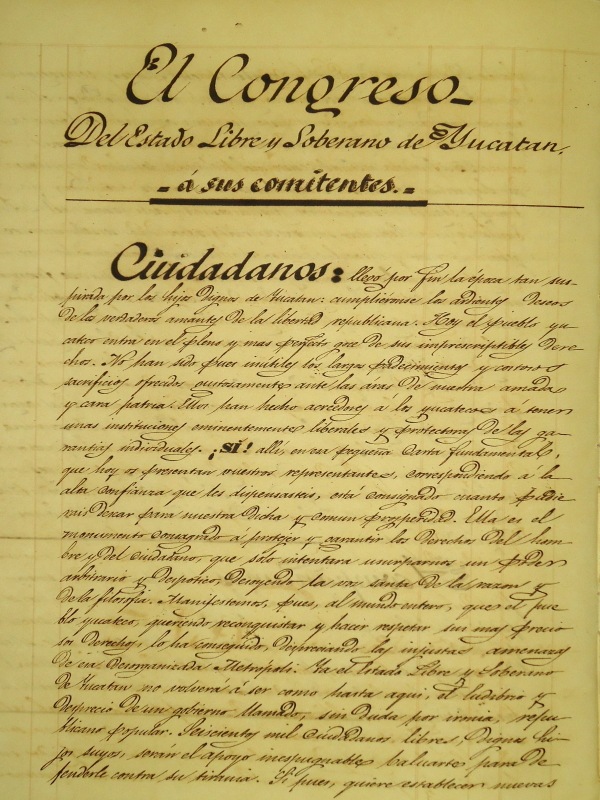 El Congreso
Del Estado Libre y Soberano de Yucatan,
á sus comitentes.
Ciudadanos: llegó por fin la época tan sus-
pirada por los hijos dignos de Yucatan: cumpliéronse los ardientes deseos
de los verdaderos amantes de la libertad republicana. Hoy el pueblo yu-
cateco entra en el pleno y mas perfecto goce de sus imprescriptibles dere-
chos. No han sido pues inútiles los largos padecimientos y costosos
sacrificios ofrecidos gustosamente ante las aras de nuestra amada
y cara patria. Ellos han hecho acreedores á los yucatecos a tener
unas instituciones eminentemente liberales y protectoras de las ga-
rantías individuales. ¡SÍ! allí, en esa pequeña Carta fundamental,
que hoy os presentan vuestros representantes, correspondiendo á la
alta confianza que les dispensasteis, está consignado cuanto pudie-
rais desear para nuestra dicha y comun prosperidad. Ella es el
monumento consagrado á protejer y garantir los derechos del hom-
bre y del ciudadano, que sólo intentara usurparnos un poder
arbitrario y despótico, desoyendo la voz santa de la razon y
de la filosofía. Manifestemos, pues, al mundo entero, que el pue-
blo yucateco, queriendo reconquistar y hacer respetar sus mas precio-
sos derechos, lo ha conseguido, despreciando las injustas amenazas
de esa desorganizada Metrópoli. Ya el Estado Libre y Soberano
de Yucatan no volverá á ser como hasta aqui, el ludibrio y
desprecio de un gobierno llamado, sin duda por ironia, repu-
blicano popular. Seiscientos mil ciudadanos libres, dignos hi-
jos suyos, serán el apoyo inespugnable baluarte para de-
fenderle contra su tirania. Si pues, quiere establecer nuevas